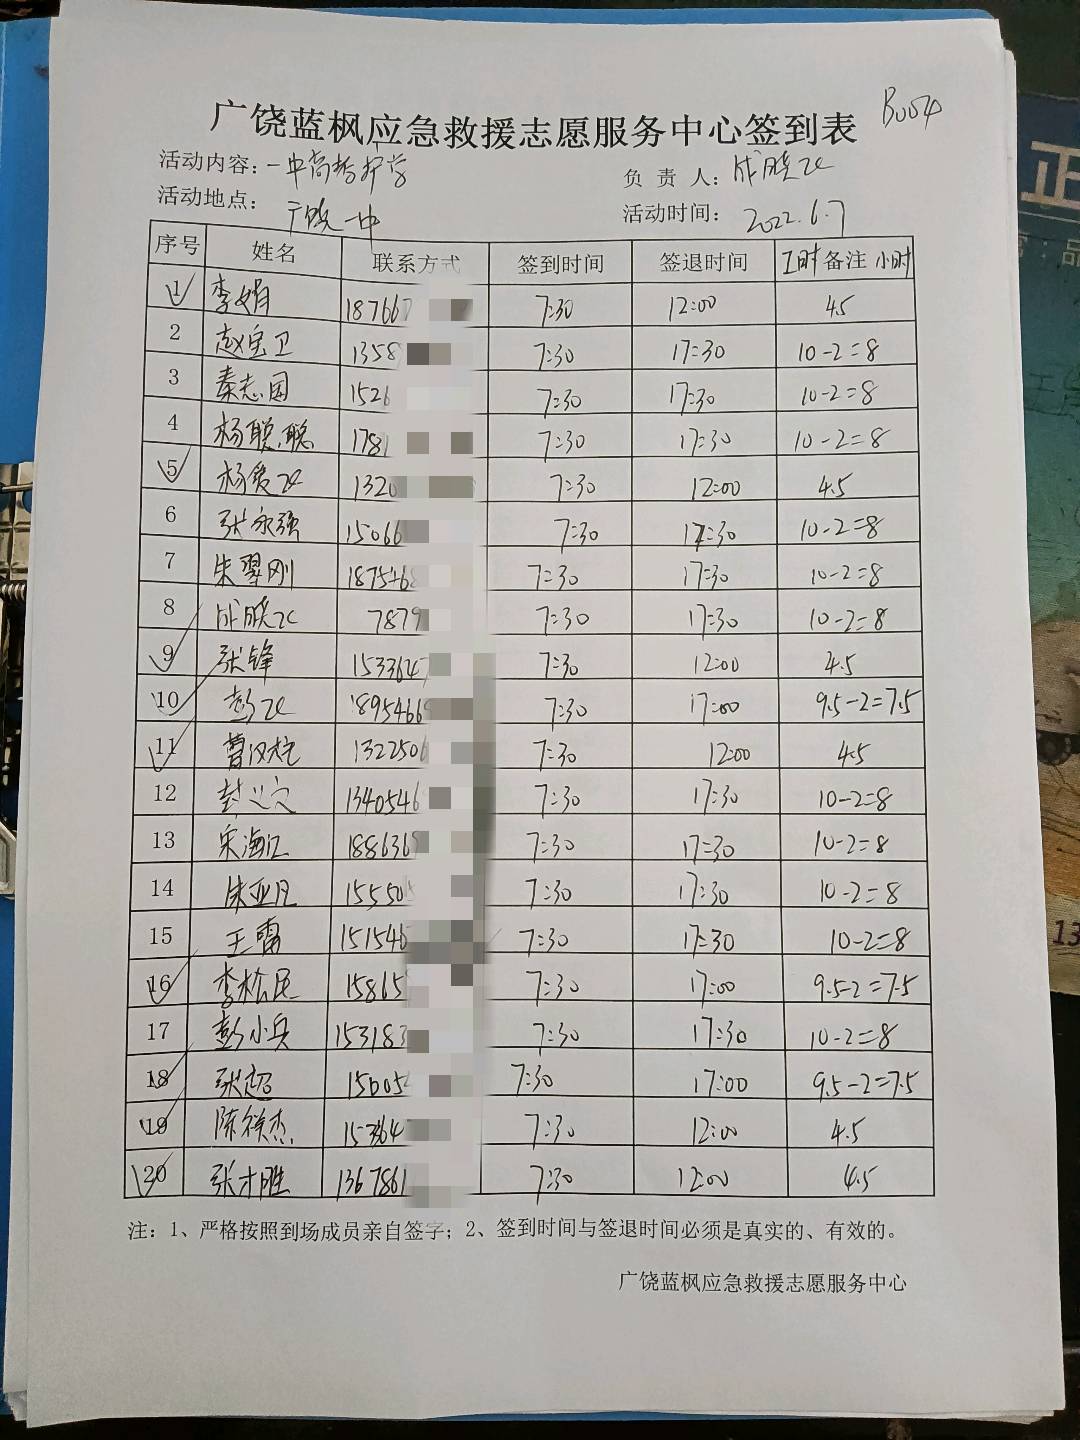 B004
广饶蓝枫应急救援志愿服务中心签到表
活动内容：一中高考护学 负 责 人：成晓红
活动地点：广饶一中 活动时间：2022.6.7
序号 姓名 联系方式 签到时间 签退时间 工时备注 小时
1 李娟 18766 7:30 12:00 4.5
2 赵宝卫 1358 7:30 17:30 10-2=8
3 秦志国 1526 7:30 17:30 10-2=8
4 杨聪聪 1781 7:30 17:30 10-2=8
5 杨爱红 1320 7:30 12:00 4.5
6 张永强 15066 7:30 17:30 10-2=8
7 朱翠刚 1875468 7:30 17:30 10-2=8
8 成晓红 7879 7:30 17:30 10-2=8
9 张锋 1533647 7:30 12:00 4.5
10 彭红 1895466 7:30 17:00 9.5-2=7.5
11 曹 1322506 7:30 12:00 4.5
12 1340546 7:30 17:30 10-2=8
13 宋海江 1886368 7:30 17:30 10-2=8
14 朱亚凡 15550 7:30 17:30 10-2=8
15 王雷 151546 7:30 17:30 10-2=8
16 李松民 15865 7:30 17:00 9.5-2=7.5
17 彭小兵 153183 7:30 17:30 10-2=8
18 张超 15005 7:30 17:00 9.5-2=7.5
19 陈祥杰 15364 7:30 12:00 4.5
20 张才胜 1367861 7:30 12:00 4.5
注：1、严格按照到场成员亲自签字；2、签到时间与签退时间必须是真实的、有效的。
广饶蓝枫应急救援志愿服务中心
正
13